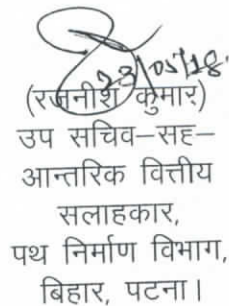 23/05/18
(रजनीश कुमार)
उप सचिव-सह-
आन्तरिक वित्तीय
सलाहकार,
पथ निर्माण विभाग,
बिहार, पटना।